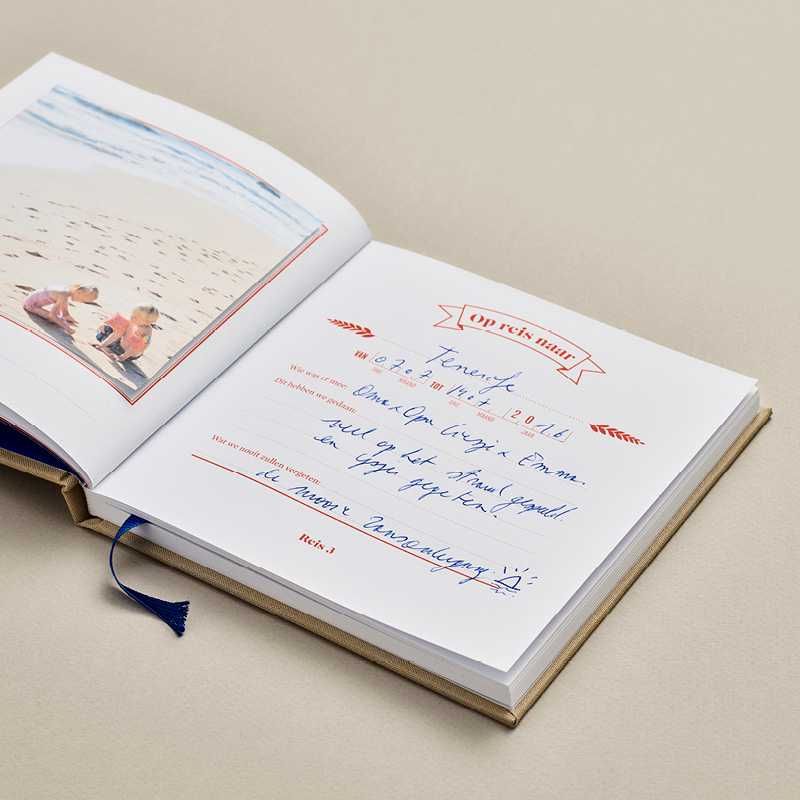 Op reis naar
Tenerife
VAN 0707 TOT 1407 2016
DAG MAAND DAG MAAND JAAR
Wie was er mee: Oma & Opa Liezzi & Emma.
Dit hebben we gedaan:
veel op het strand gespeeld.
en ijsjes gegeten.
Wat we nooit zullen vergeten:
de mooie zonsondergang.
Reis 3